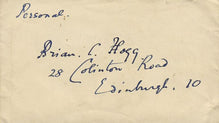 Personal:
Brian. C. Hogg
28 Colinton Road
Edinburgh. 10